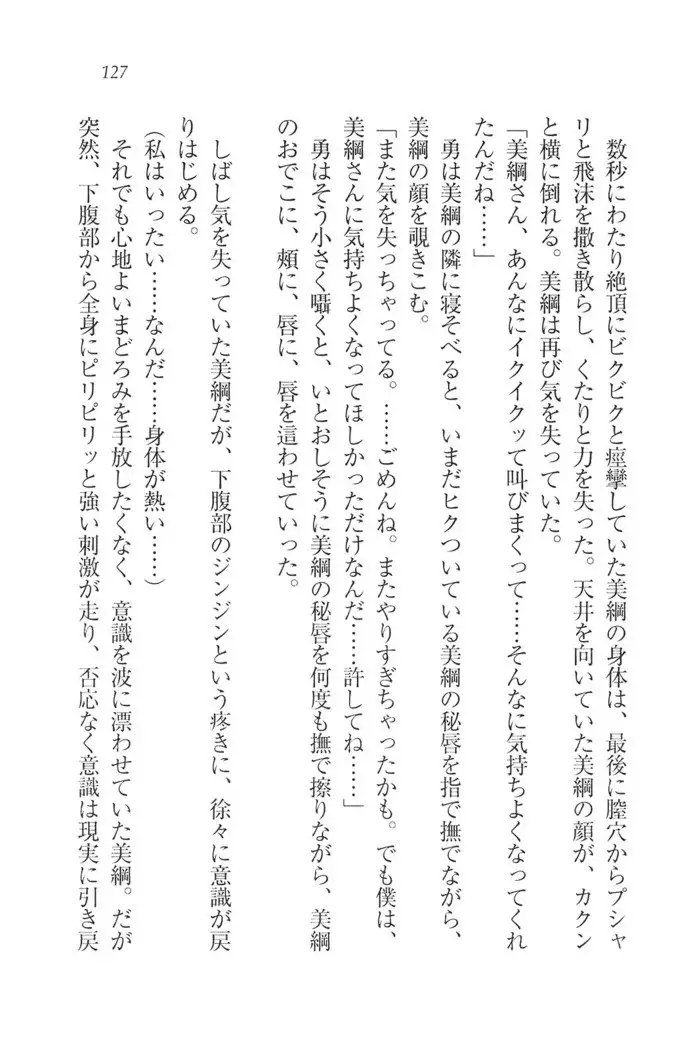 127
数秒にわたり絶頂にビクビクと痙攣していた美綱の身体は、最後に膣穴からプシャ
リと飛沫を撒き散らし、くたりと力を失った。天井を向いていた美綱の顔が、カクン
と横に倒れる。美綱は再び気を失っていた。
「美綱さん、あんなにイクイクッて叫びまくって……そんなに気持ちよくなってくれ
たんだね……」
勇は美綱の隣に寝そべると、いまだヒクついている美綱の秘唇を指で撫でながら、
美綱の顔を覗きこむ。
「また気を失っちゃってる。……ごめんね。またやりすぎちゃったかも。でも僕は、
美綱さんに気持ちよくなってほしかっただけなんだ……許してね……」
勇はそう小さく囁くと、いとおしそうに美綱の秘唇を何度も撫で擦りながら、美綱
のおでこに、頬に、唇に、唇を這わせていった。
しばし気を失っていた美綱だが、下腹部のジンジンという疼きに、徐々に意識が戻
りはじめる。
（私はいったい……なんだ……身体が熱い……）
それでも心地よいまどろみを手放したくなく、意識を波に漂わせていた美綱。だが
突然、下腹部から全身にピリピリッと強い刺激が走り、否応なく意識は現実に引き戻